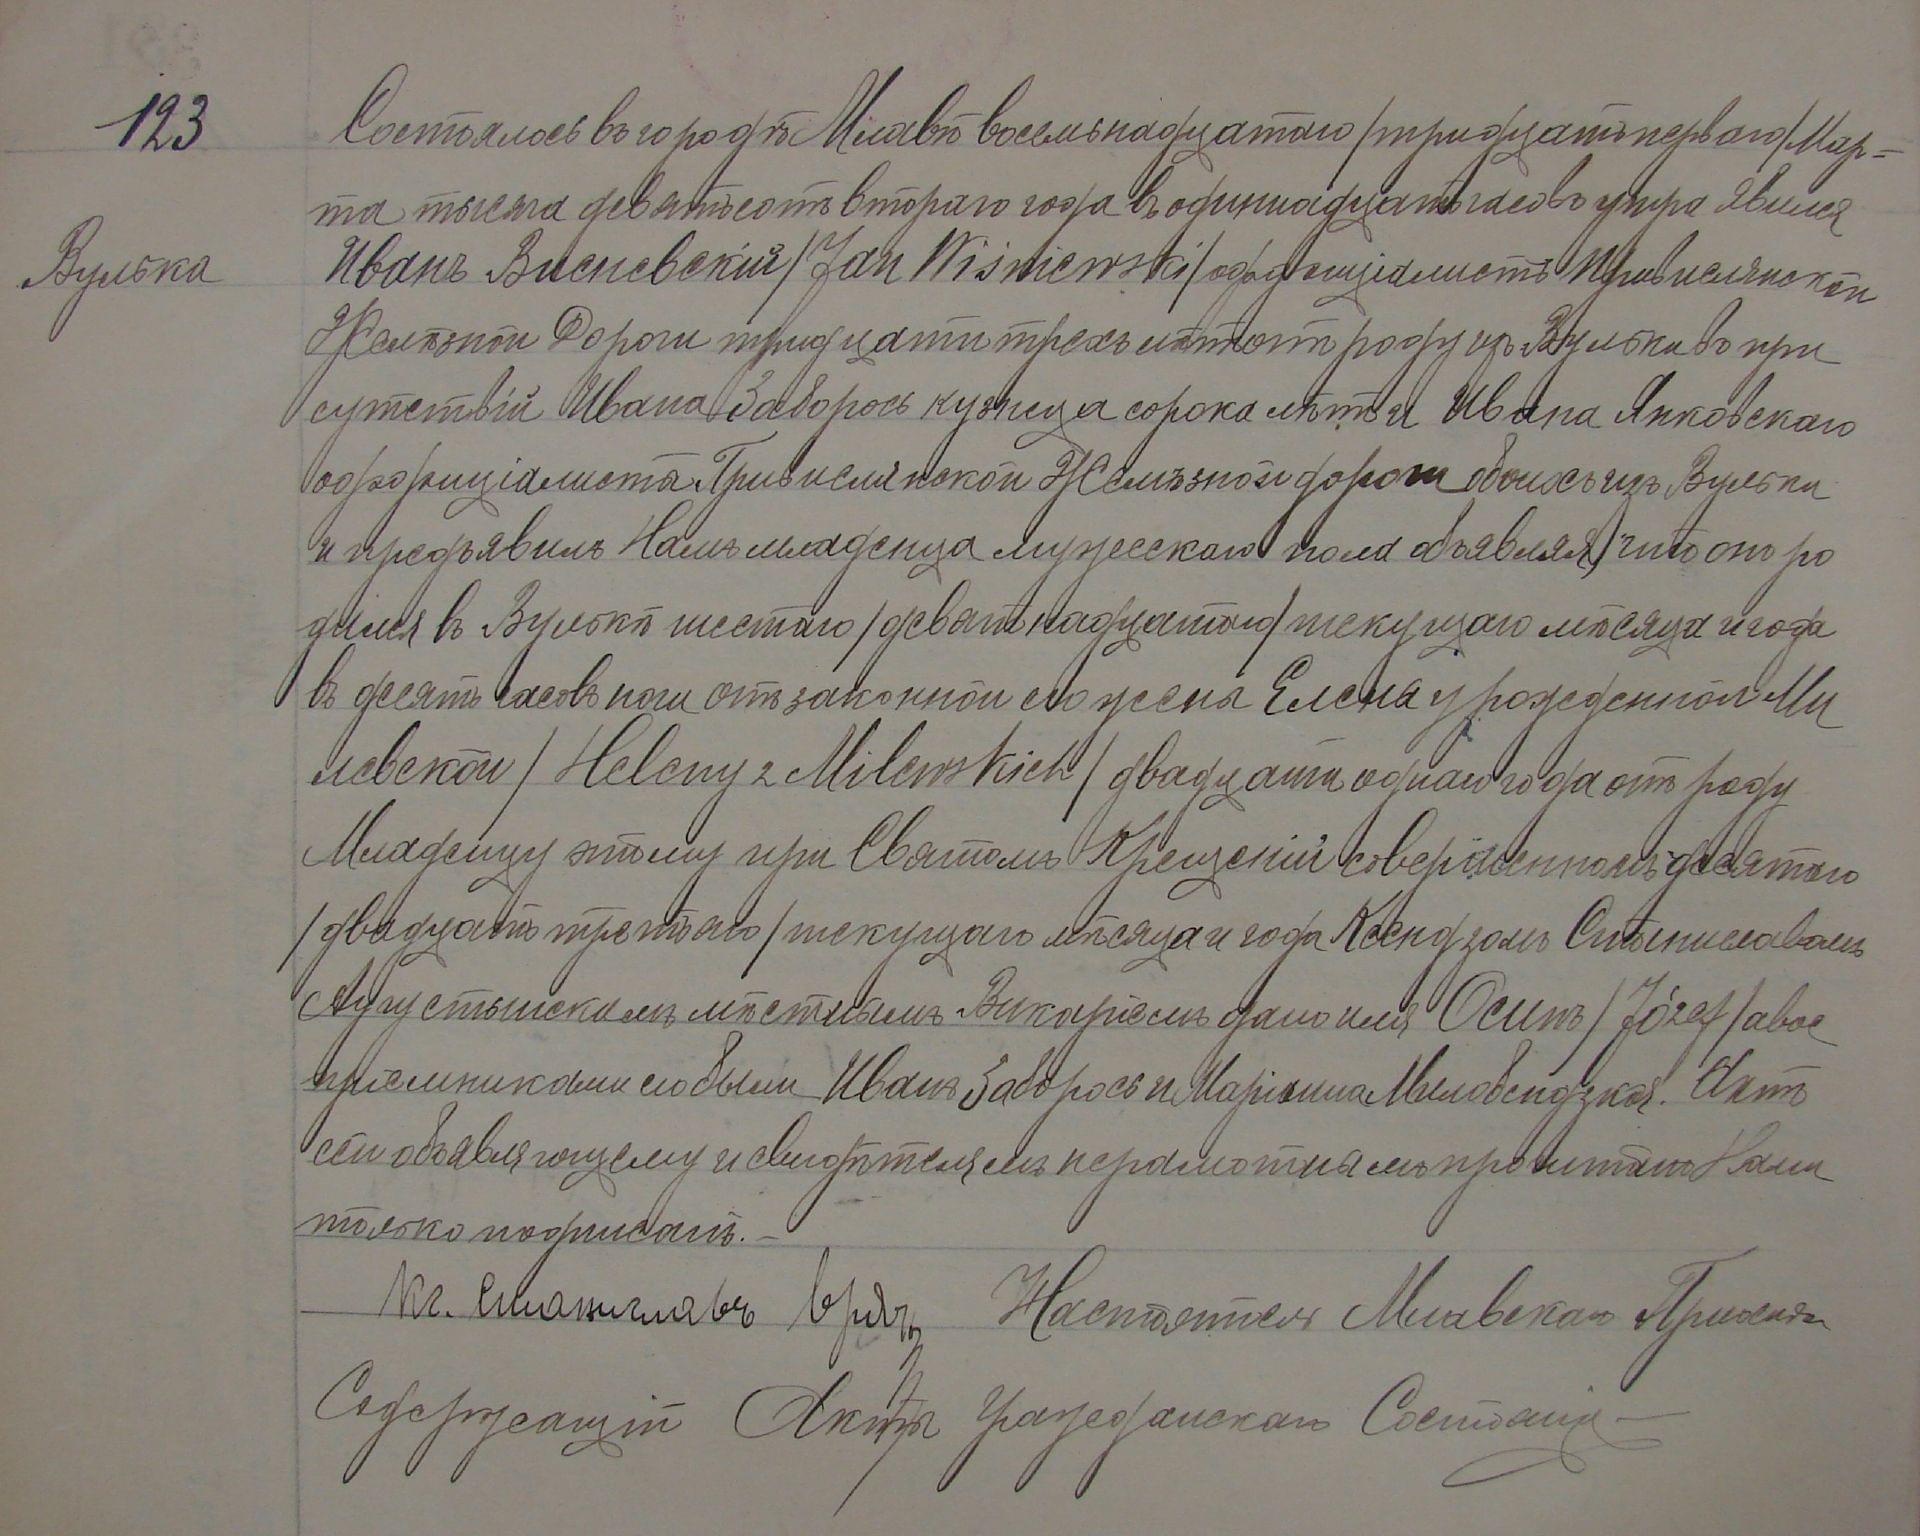 123
Состоялось въ городѣ Млавѣ восемьнадцатаго /тридцать перваго/ Мар=
та тысяча девятьсотъ втораго года въ одиннадцать часовъ утра Явился
Вулька
Иванъ Висневскій /Jan Wiśniewski/ оффиціалистъ Привислянской
Желѣзной Дороги тридцати трехъ лѣтъ отъ роду изъ Вульки въ при
сутствій Ивана Заборось кузнеца сорока лѣтъ и Ивана Янковскаго
оффиціалиста Привислянской Желѣзной дороги обоихъ изъ Вульки
и предъявилъ Намъ младенца мужескаго пола объявляя, что онъ ро
дился въ Вулькѣ шестаго /девятнадцатаго/ текущаго мѣсяца и года
въ десять часовъ ночи отъ законной его жены Елены урожденной Ми
левской /Heleny z Milewskich/ двадцати одного года отъ роду
Младенцу этому при Святомъ Крещеній совершенномъ десятаго
/двадцать третьяго/ текущаго мѣсяца и года Ксендзомъ Станиславомъ
мѣстнымъ Викаріемъ дано имя Осипъ /Józef/ а вос
пріемниками его были Иванъ Заборось и Маріанна Милобендзкая. Актъ
сей объявляющему и свидѣтелямъ неграмотнымъ прочитанъ Нами
только подписанъ.-
Кс. Станиславъ Настоятель Млавскаго Прихода
Содержащій Акты Гражданскаго Состоянія